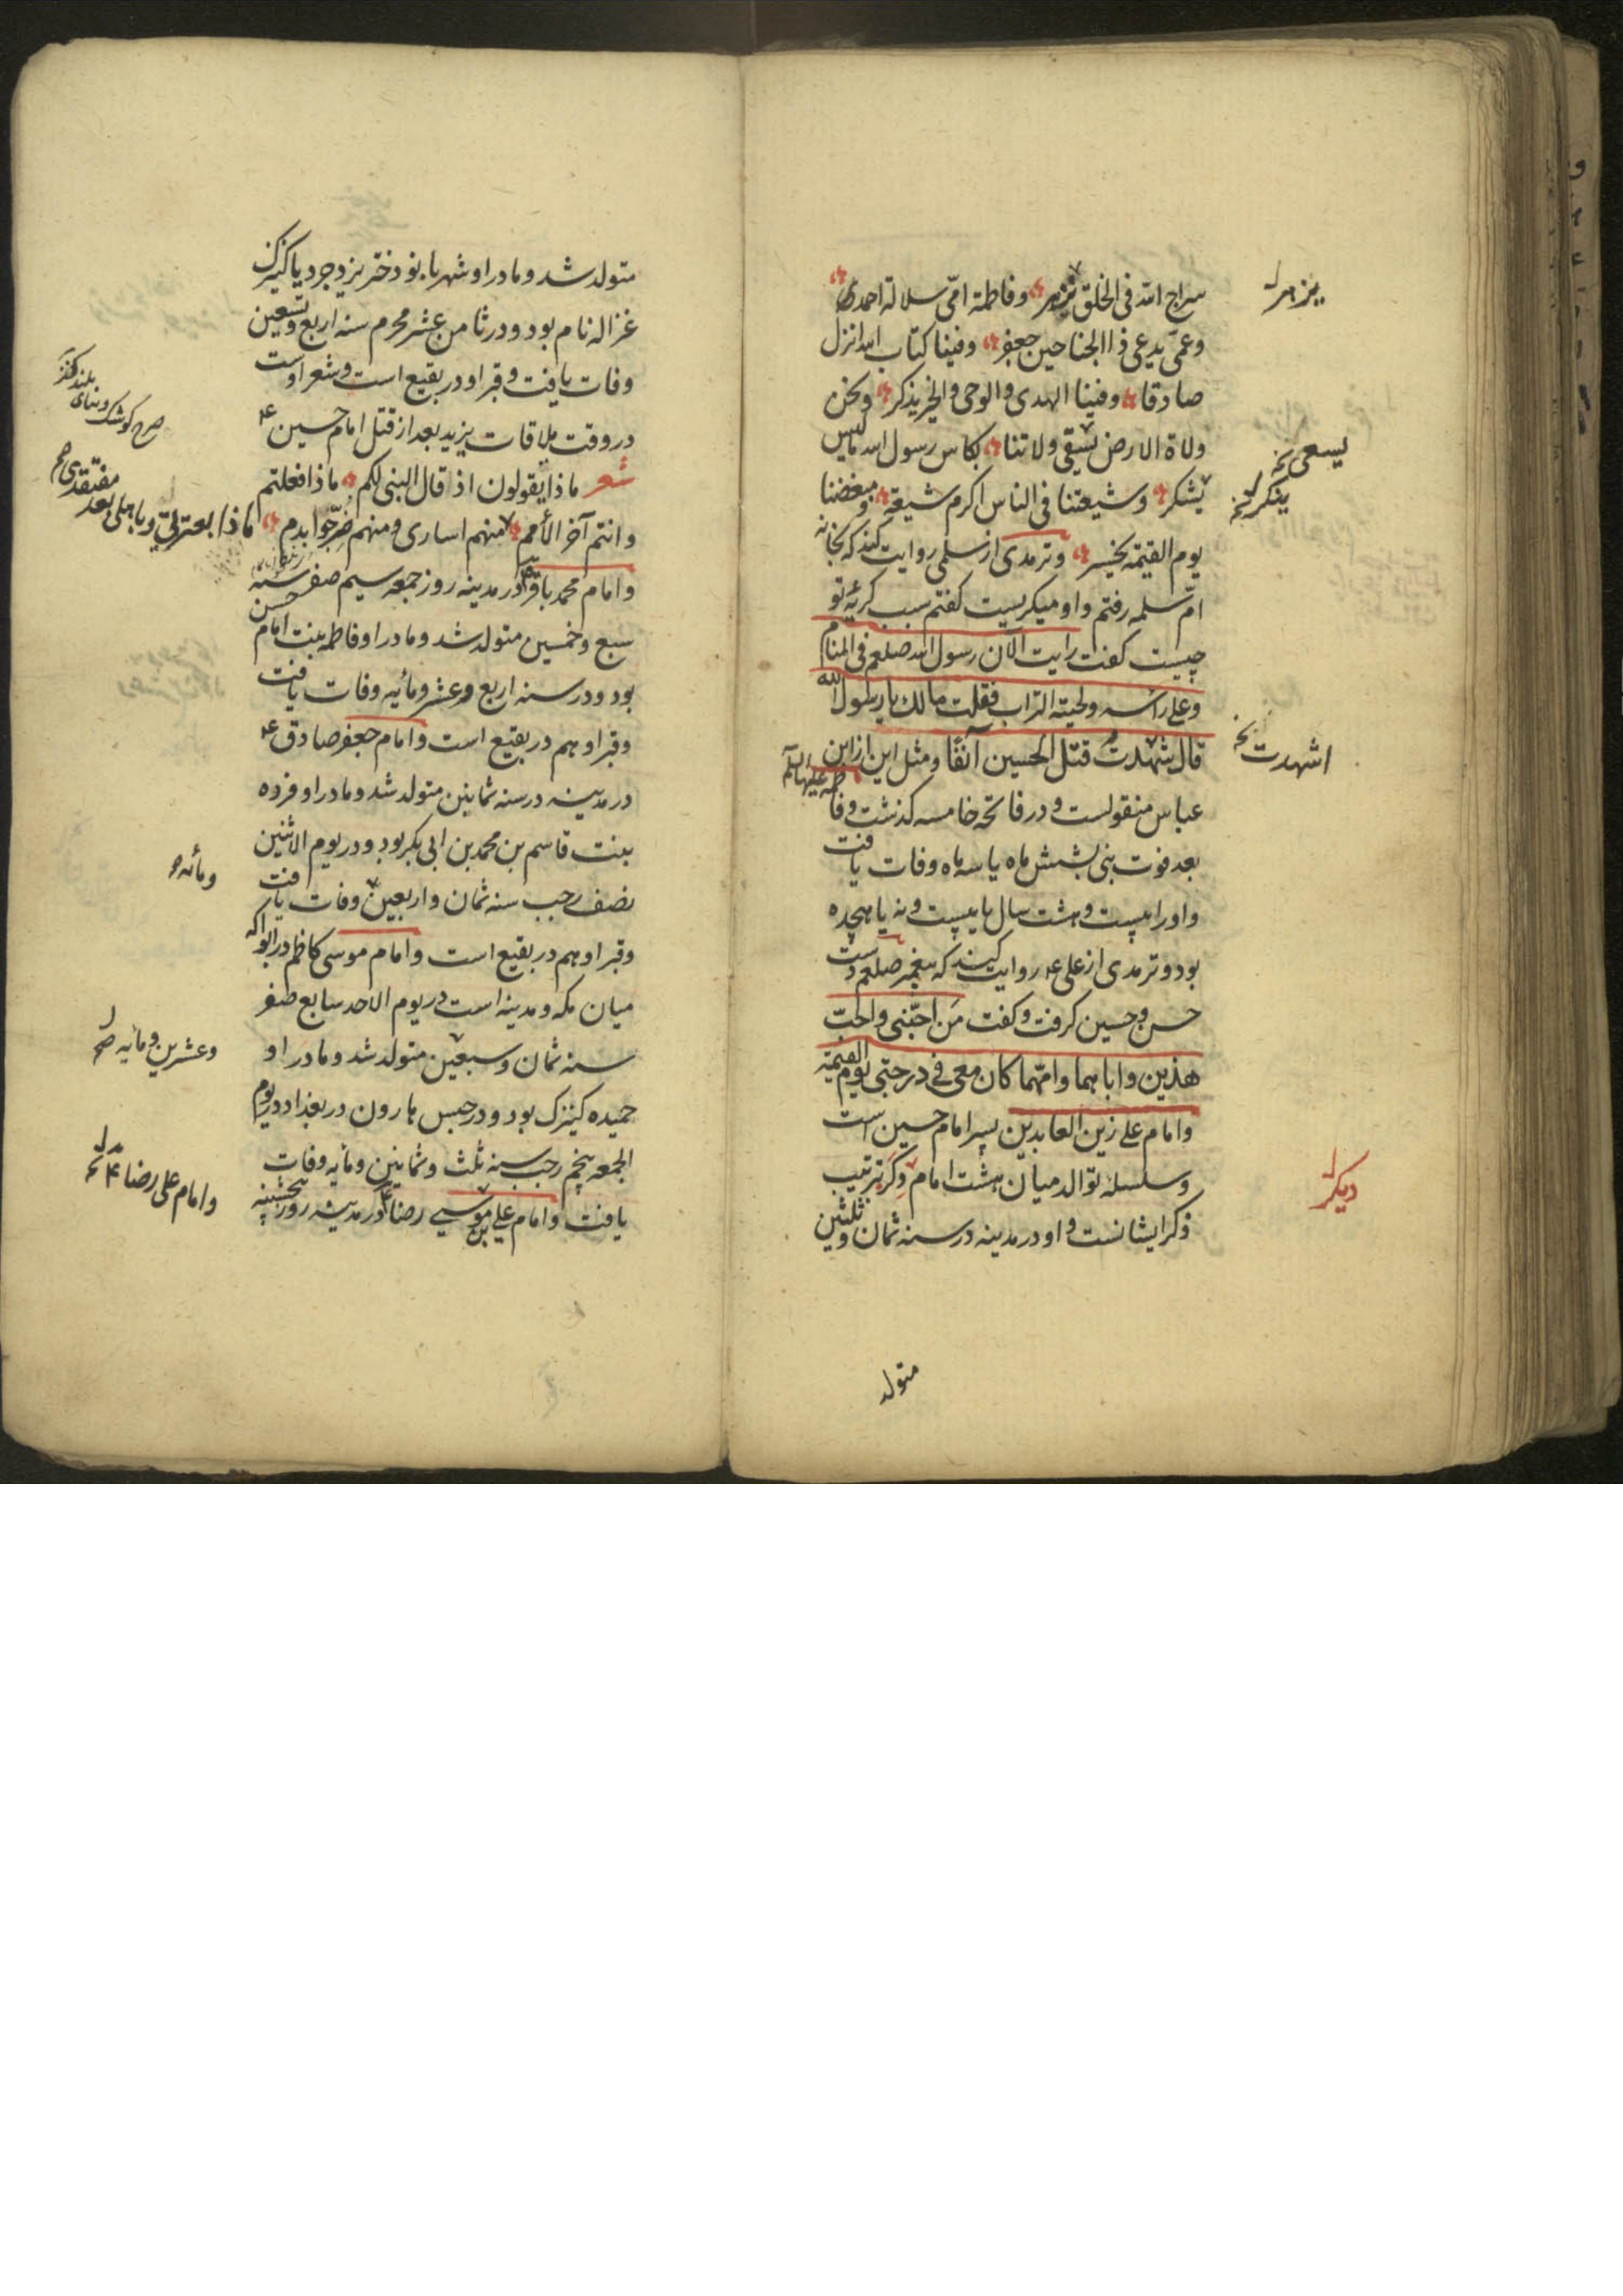 سراج الله فی الخلق یزهر وفاطمة امّی سلالة احمد
وعمّی یدعی ذا الجناحین جعفر وفینا کتاب الله انزل
صادقا وفینا الهدی والوحی والخیر یذکر ونحن
ولاة الارض نسقی ولاتنا بکاس رسول الله مالیس
ینکر وشیعتنا فی الناس اکرم شیعة ومبغضنا
یوم القیمة یخسر وترمدی از سلمی روایت کند که بخانه
امّ سلمه رفتم واو میکریست کفتم سبب کریهٔ تو
چیست کفت رایت الآن رسول الله صلعم فی المنام
وعلی رأسه ولحیته التراب فقلت مالک یا رسول الله
قال شهدت قتل الحسین آنفًا ومثل این از ابن
عباس منقولست ودر فاتحه خامسه کذشت وفاطمه علیها السلام
بعد فوت نبی بشش ماه یا سه ماه وفات یافت
واورا بیست وهشت سال یا بیست ونه یا هیجده
بود وترمدی از علی ع روایت کند که پیغمبر صلعم دست
حسن وحسین کرفت وکفت مَن احبّنی واحبّ
هذین واباهما وامّهما کان معی فی درجتی یوم القیمة
وامام علی زین العابدین پسر امام حسین است
وسلسله توالد میان هشت امام دکر بترتیب
ذکر ایشانست واو در مدینه در سنه ثمان وثلثین
یزهر
یسعی
ینکر
اشهدت
دیکر
متولد
متولد شد ومادر او شهربانو دختر یزدجرد یا کنیزک
غزاله نام بود ودر ثامن عشر محرم سنه اربع وتسعین
وفات یافت وقبر او در بقیع است وشعر اوست
در وقت ملاقات یزید بعد از قتل امام حسین ع
شعر ماذا یقولون اذ قال النبی لکم ماذا فعلتم
وانتم آخر الأمم منهم اساری ومنهم ضرّجوا بدم
وامام محمد باقر در مدینه روز جمعه سیم صفر سنه
سبع وخمسین متولد شد ومادر او فاطمه بنت امام حسن
بود ودر سنه اربع وعشر ومأیه وفات یافت
وقبر او هم در بقیع است وامام جعفر صادق ع
در مدینه در سنه ثمانین متولد شد ومادر او فروه
بنت قاسم بن محمد بن ابی بکر بود ودر یوم الاثنین
نصف رجب سنه ثمان واربعین وفات یافت
وقبر او هم در بقیع است وامام موسی کاظم در ابوا که
میان مکه ومدینه است در یوم الاحد سابع صفر
سنه ثمان وسبعین متولد شد ومادر او
حمیده کنیزک بود ودر حبس هارون در بغداد در یوم
الجمعه پنجم رجب سنه ثلث وثمانین ومأیه وفات
یافت وامام علی بن موسی رضا در مدینه روز پنجشنبه
صرح کوشک وبنای بلند
ماذا بعترتی وباهلی بعد مفتقدی صح
ومأئه
وعشرین ومأیه صح
وامام علی رضا ع